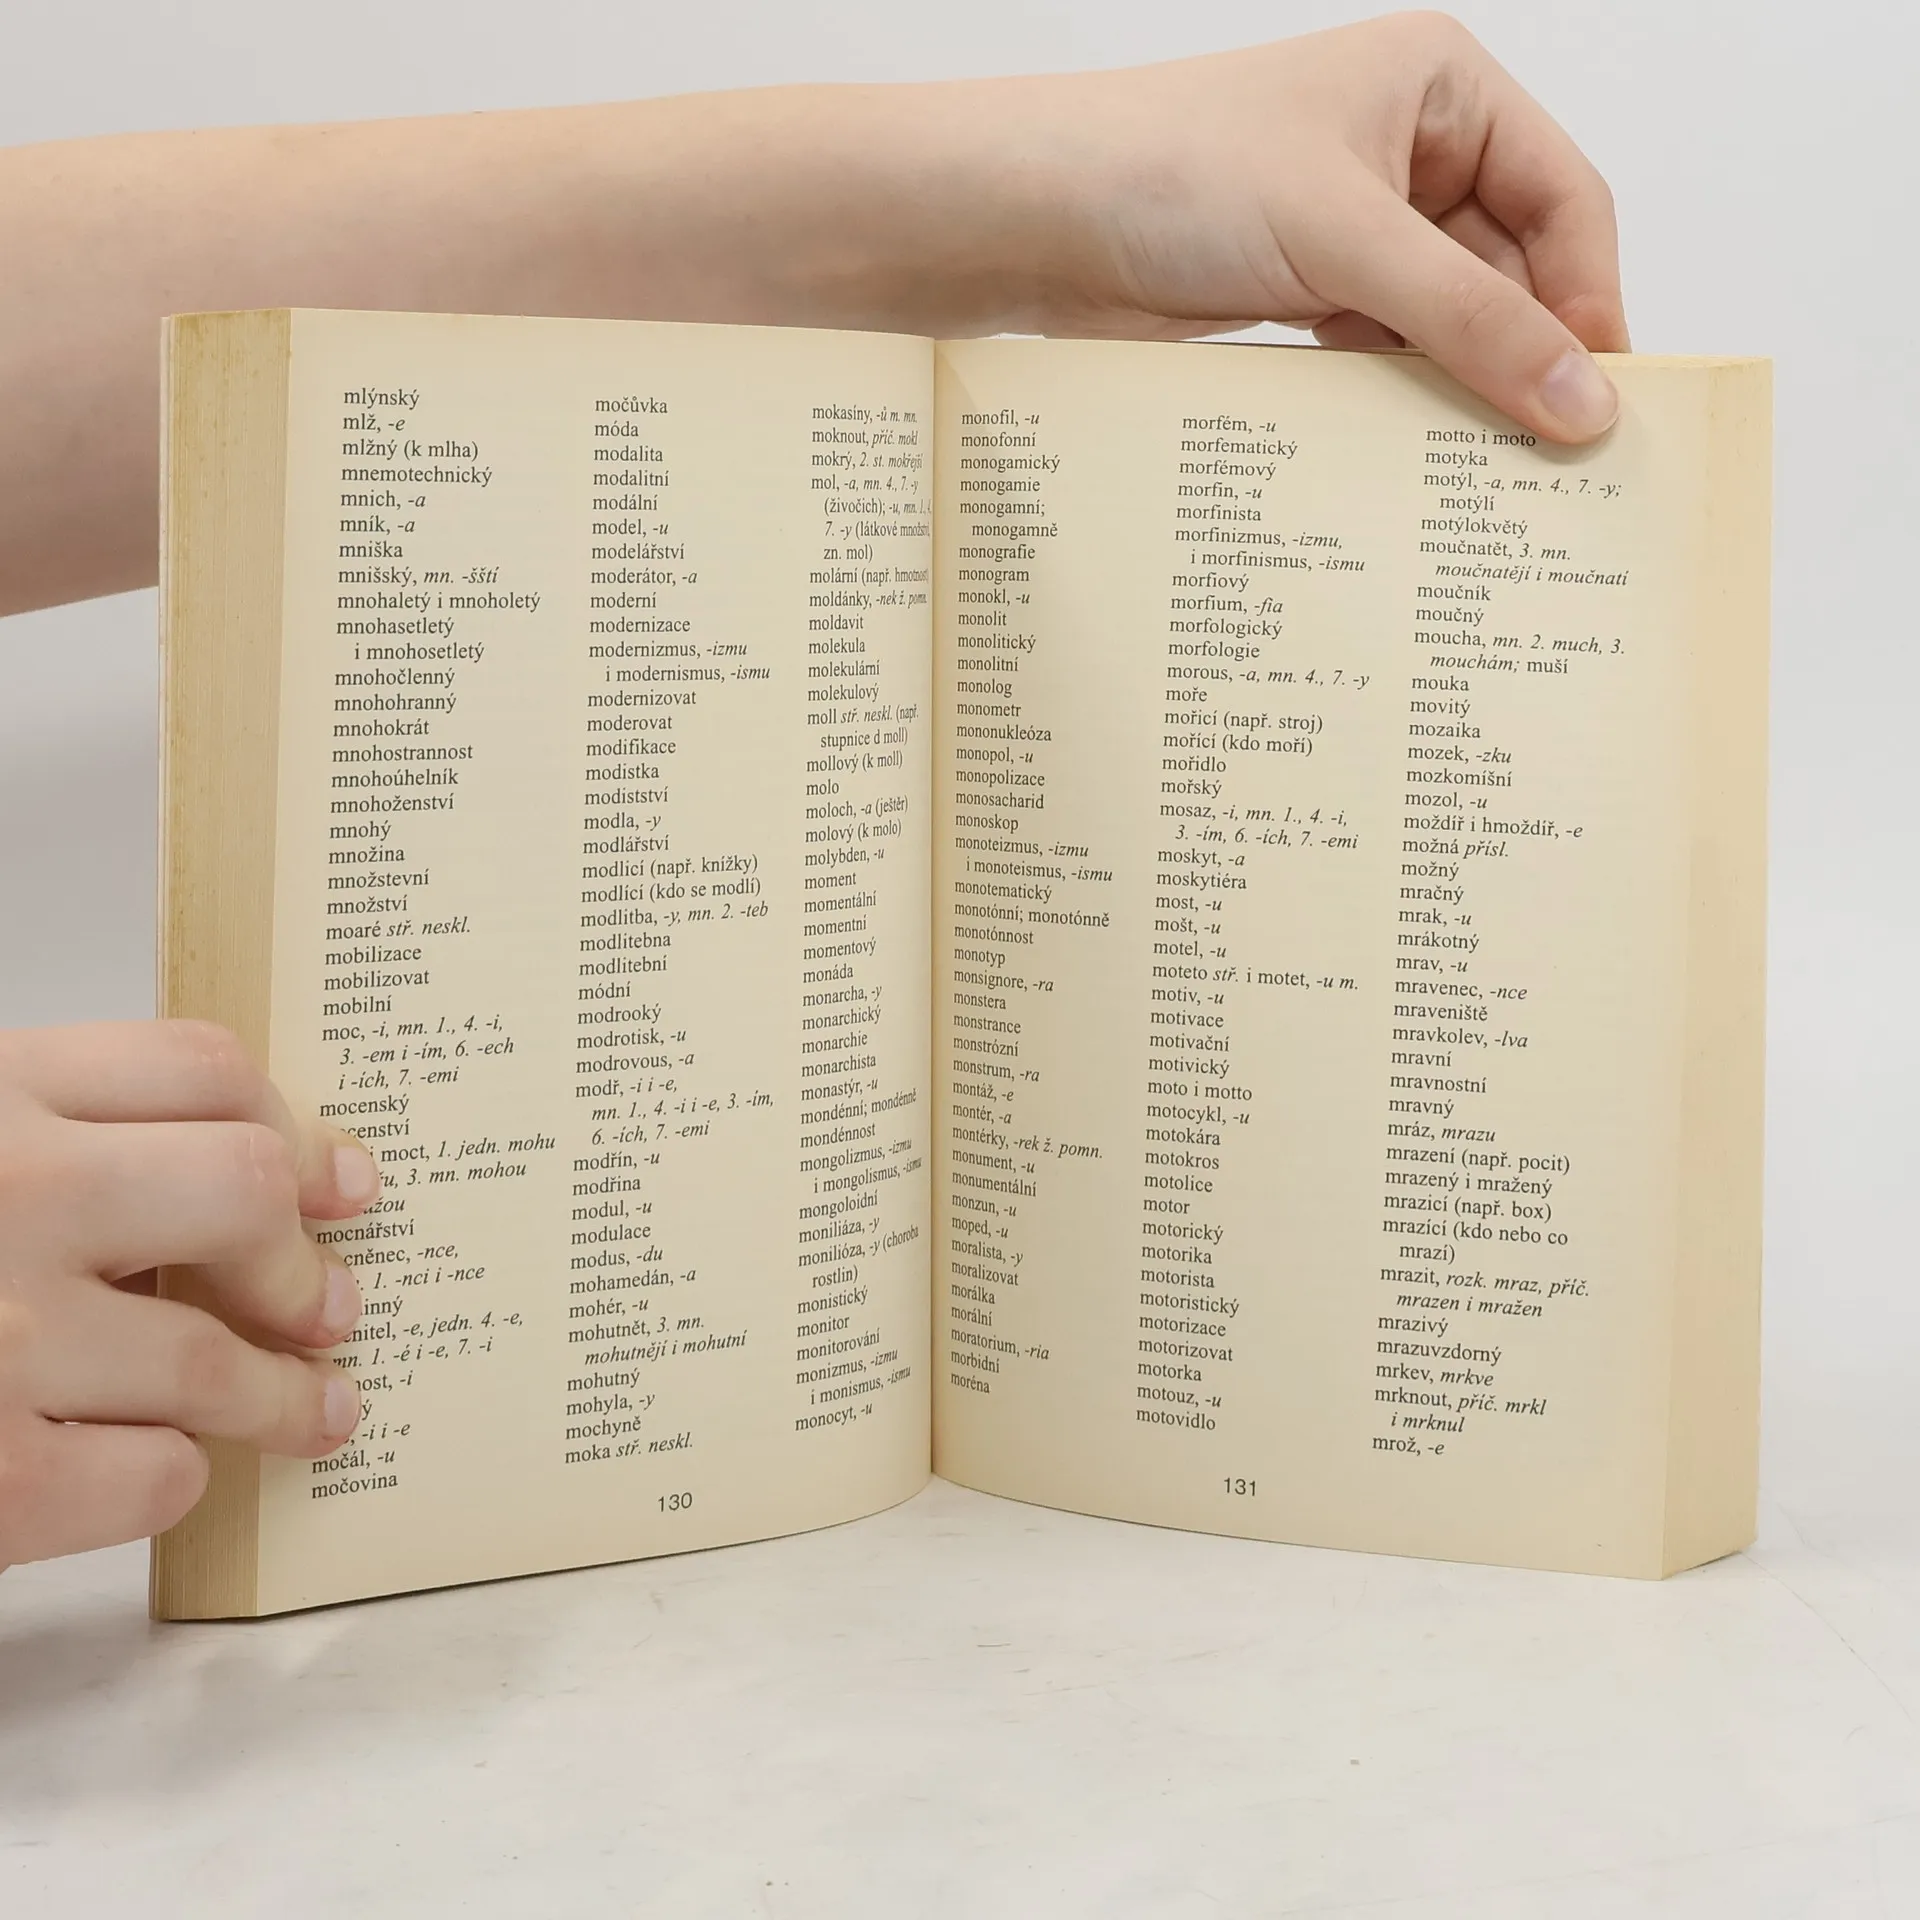 mlýnský
mlž, -e
mlžný (k mlha)
mnemotechnický
mnich, -a
mník, -a
mniška
mnišský, mn. -šští
mnohaletý i mnoholetý
mnohasetletý
i mnohosetletý
mnohočlenný
mnohohranný
mnohokrát
mnohostrannost
mnohoúhelník
mnohoženství
mnohý
množina
množstevní
množství
moaré stř. neskl.
mobilizace
mobilizovat
mobilní
moc, -i, mn. 1., 4. -i,
3. -em i -ím, 6. -ech
i -ích, 7. -emi
mocenský
i moct, 1. jedn. mohu
3. mn. mohou
mocnářství
-nce,
1. -nci i -nce
-e, jedn. 4. -e,
mn. 1. -é i -e, 7. -i
-i
-i i -e
močál, -u
močovina
močůvka
móda
modalita
modalitní
modální
model, -u
modelářství
moderátor, -a
moderní
modernizace
modernizmus, -izmu
i modernismus, -ismu
modernizovat
moderovat
modifikace
modistka
modiství
modla, -y
modlářství
modlicí (např. knížky)
modlící (kdo se modlí)
modlitba, -y, mn. 2. -teb
modlitebna
modlitební
módní
modrooký
modrotisk, -u
modrovous, -a
modř, -i i -e,
mn. 1., 4. -i i -e, 3. -ím,
6. -ích, 7. -emi
modřín, -u
modřina
modul, -u
modulace
modus, -du
mohamedán, -a
mohér, -u
mohutnět, 3. mn.
mohutnějí i mohutní
mohutný
mohyla, -y
mochyně
moka stř. neskl.
mokasíny, -ů m. mn.
moknout, příč. mokl
mokrý, 2. st. mokřejší
mol, -a, mn. 4., 7. -y
(živočich); -u, mn. 1., 4.
7. -y (látkové množství,
zn. mol)
molární (např. hmotnost)
moldánky, -nek ž. pomn.
moldavit
molekula
molekulární
molekulový
moll stř. neskl. (např.
stupnice d moll)
mollový (k moll)
molo
moloch, -a (ještěr)
molový (k molo)
molybden, -u
moment
momentální
momentní
momentový
monáda
monarcha, -y
monarchický
monarchie
monarchista
monastýr, -u
mondénní; mondénně
mondénnost
mongolizmus, -izmu
i mongolismus, -ismu
mongoloidní
moniliáza, -y
monilióza, -y (choroba
rostlin)
monistický
monitor
monitorování
monizmus, -izmu
i monismus, -ismu
monocyt, -u
130
monofil, -u
monofonní
monogamický
monogamie
monogamní;
monogamně
monografie
monogram
monokl, -u
monolit
monolitický
monolitní
monolog
monometr
mononukleóza
monopol, -u
monopolizace
monosacharid
monoskop
monoteizmus, -izmu
i monoteismus, -ismu
monotematický
monotónní; monotónně
monotónnost
monotyp
monsignore, -ra
monstera
monstrance
monstrózní
monstrum, -ra
montáž, -e
montér, -a
montérky, -rek ž. pomn.
monument, -u
monumentální
monzun, -u
moped, -u
moralista, -y
moralizovat
morálka
morální
moratorium, -ria
morbidní
moréna
morfém, -u
morfematický
morfémový
morfin, -u
morfinista
morfinizmus, -izmu,
i morfinismus, -ismu
morfiový
morfium, -fia
morfologický
morfologie
morous, -a, mn. 4., 7. -y
moře
mořicí (např. stroj)
mořící (kdo moří)
mořidlo
mořský
mosaz, -i, mn. 1., 4. -i,
3. -ím, 6. -ích, 7. -emi
moskyt, -a
moskytiéra
most, -u
mošt, -u
motel, -u
moteto stř. i motet, -u m.
motiv, -u
motivace
motivační
motivický
moto i motto
motocykl, -u
motokára
motokros
motolice
motor
motorický
motorika
motorista
motoristický
motorizace
motorizovat
motorka
motouz, -u
motovidlo
motto i moto
motyka
motýl, -a, mn. 4., 7. -y;
motýlí
motýlokvětý
moučnatět, 3. mn.
moučnatějí i moučnatí
moučník
moučný
moucha, mn. 2. much, 3.
mouchám; muší
mouka
movitý
mozaika
mozek, -zku
mozkomíšní
mozol, -u
moždíř i hmoždíř, -e
možná přísl.
možný
mračný
mrak, -u
mrákotný
mrav, -u
mravenec, -nce
mraveniště
mravkolev, -lva
mravní
mravnostní
mravný
mráz, mrazu
mrazení (např. pocit)
mrazený i mražený
mrazicí (např. box)
mrazící (kdo nebo co
mrazí)
mrazit, rozk. mraz, příč.
mrazen i mražen
mrazivý
mrazuvzdorný
mrkev, mrkve
mrknout, příč. mrkl
i mrknul
mrož, -e
131